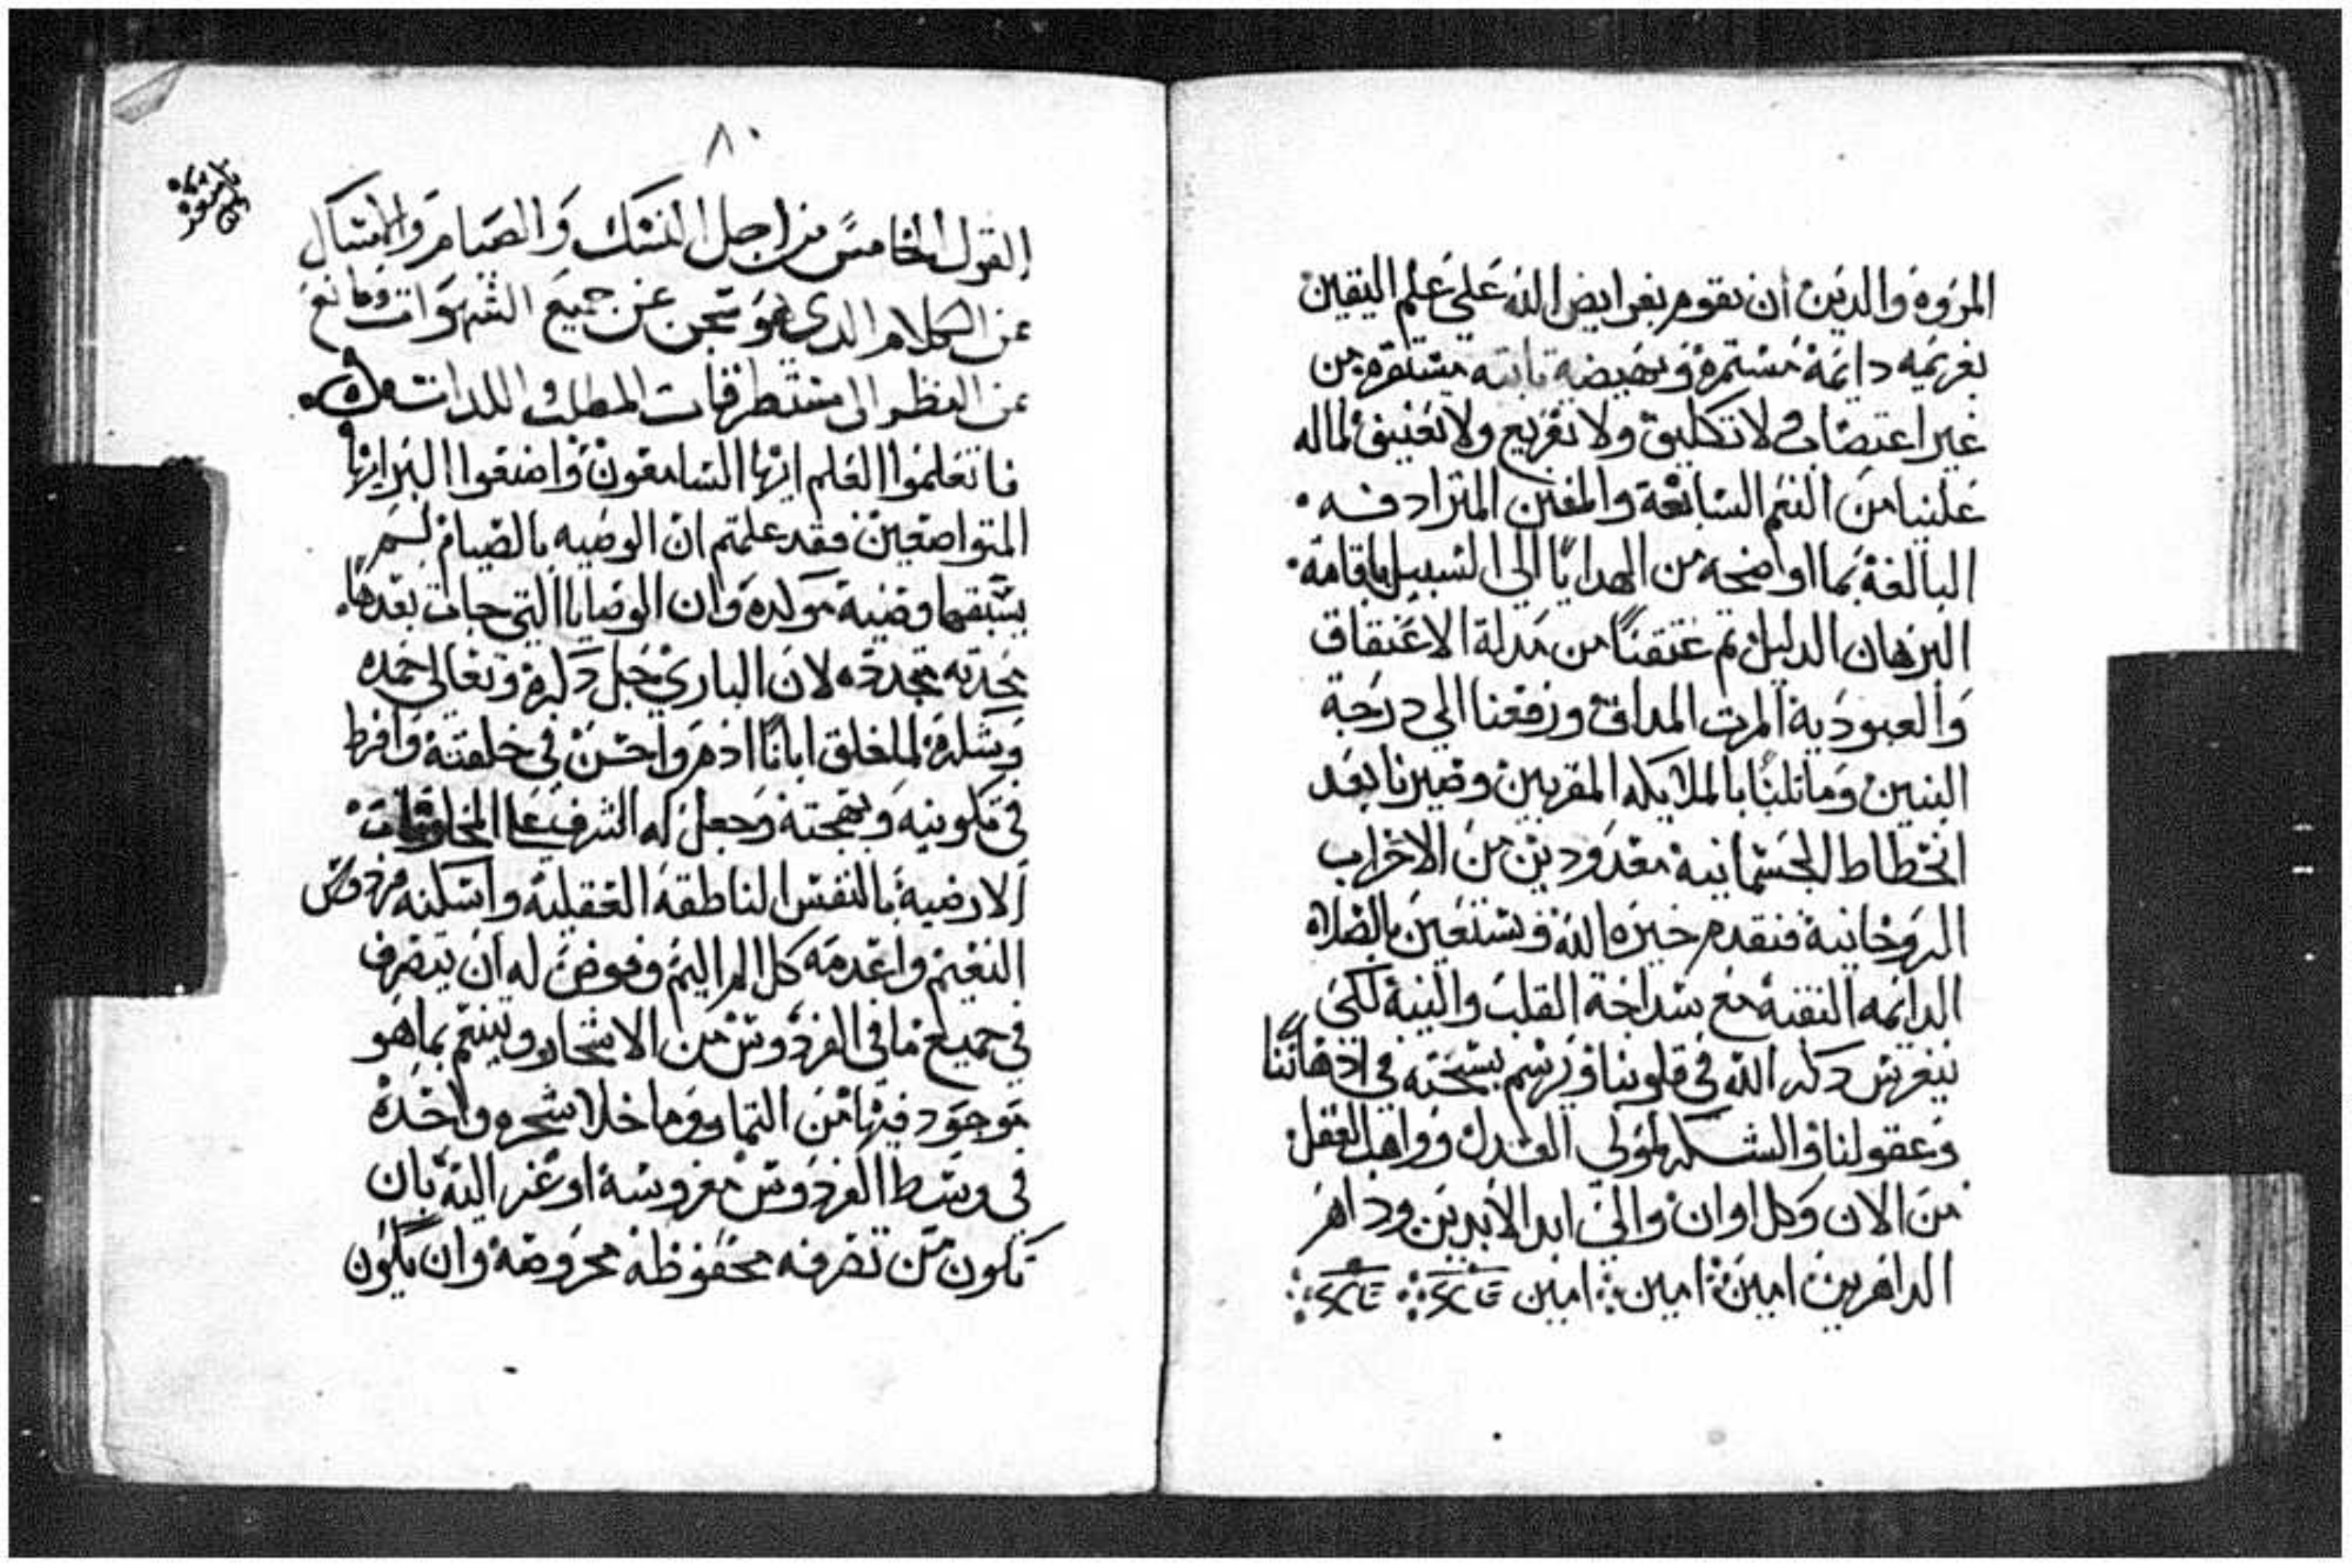 المروه والدين أن نقوم بفرايض الله على علم اليقين
بغريمه دايمة مستمرة ونهيضه تابته مستقره من
غير اعتصاب لا تكليف ولا تقريع ولا تعنيف لما له
علينا من النعم السابغة والمنن المترادفه
البالغة بما اوضحه من الهدايا الى السبيل باقامة
البرهان الدليل تم عتقنا من مدلة الاعتقاق
والعبودية المرت المداق ورفعنا الي درجة
البنين وماتلنا بالملايكه المقربين وصيرنا بعد
انحطاط الجسمانية معدودين من الاحزاب
الروحانية فنقدم خيره الله ونستعين بالصلاه
الدايمه النقية مع سداجة القلب والنية لكى
ينغرس دكر الله في قلوبنا ويرسم بسبحته في ادهاننا
وعقولنا والشكر لمولي العدل وواهب العقل
من الان وكل اوان والي ابد الابدين ودهر
الداهرين امين امين امين
٨٠
القول الخامس من اجل النسك والصيام والامساك
عن الكلام الدى هو تحجن عن جميع الشهوات ومانع
عن النظر الى مستطرفات المطلب اللدات
فاتعلموا العلم ايها السامعون واصنعوا البر ايها
المتواضعين فقد علمتم ان الوصيه بالصيام لم
يسبقها وصية مولده وان الوصايا التي جات بعدها
محدته مجدده لان الباري جل دكره وتعالى حمده
وشكره لما خلق ابانا ادم واحسن في خلقته وافرط
في تكوينه وبهجته وجعل له الشرف على المخلوقات
الارضية بالنفس الناطقه العقلية واسكنه فردوس
النعيم واعدمه كل امر اليم وفوض له ان يتصرف
في جميع ما في الفردوس من الاشجار ويتنعم بما هو
موجود فيها من التمار وما خلا شجره واحدة
في وسط الفردوس مغروسة اوعز اليه بان
تكون من تصرفه محفوظه محروصة وان يكون